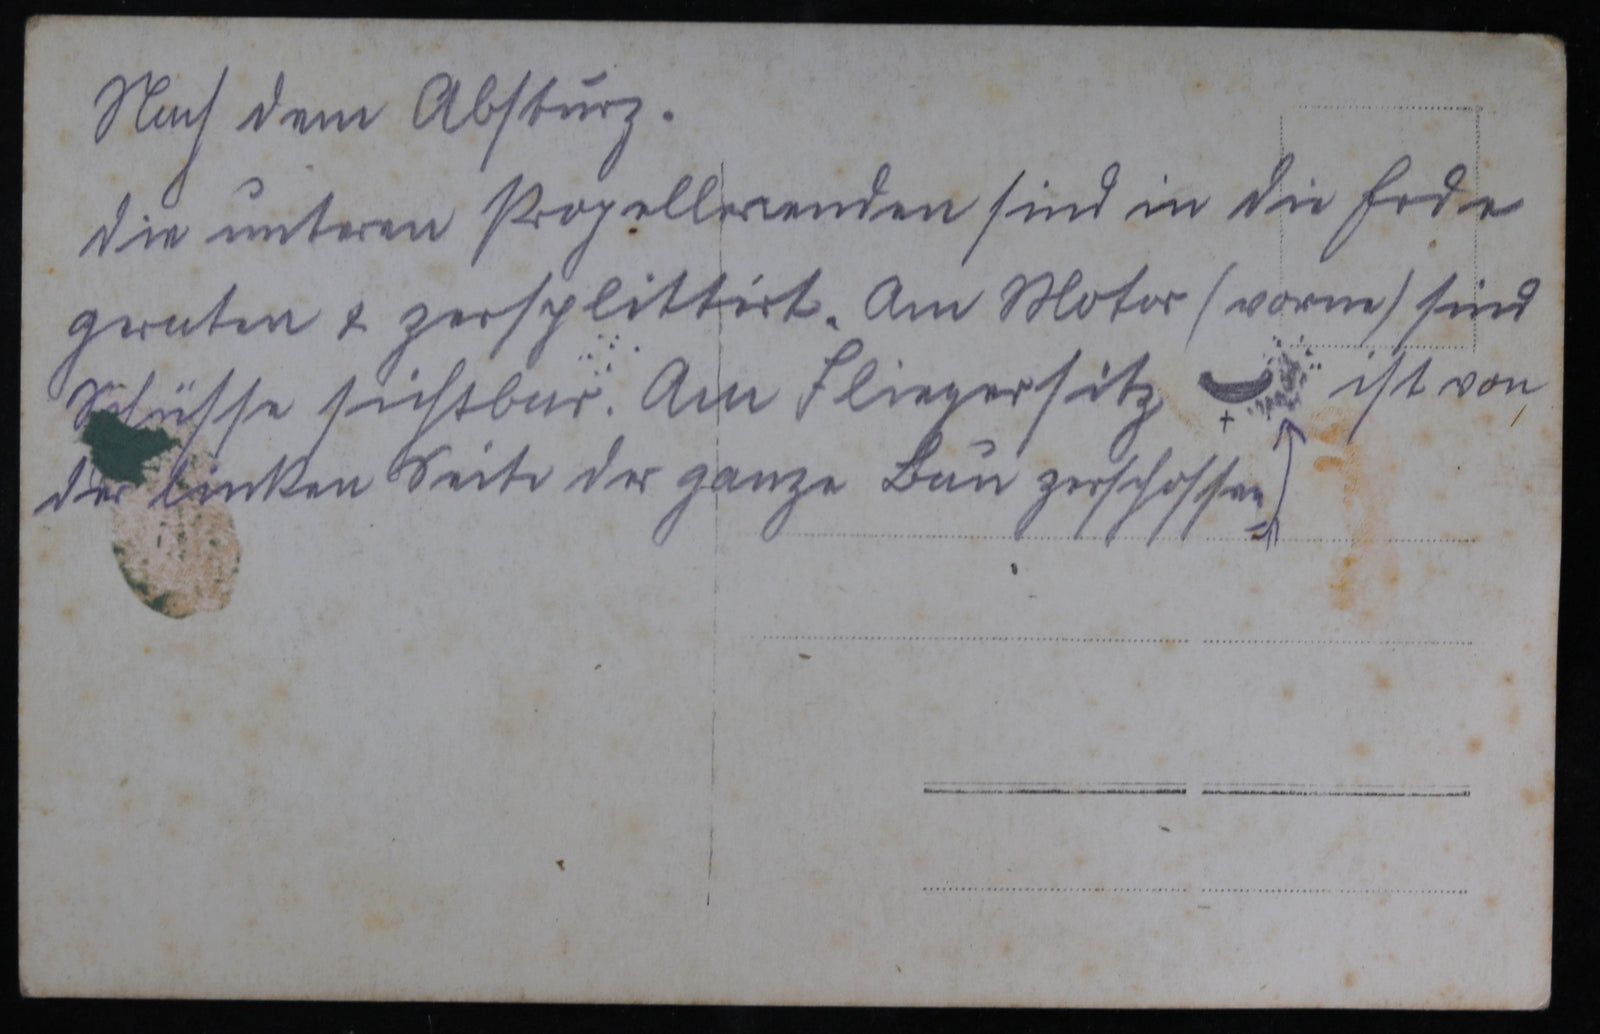 Nach dem Absturz.
die unteren Propellerenden sind in die Erde
geraten & zersplittirt. Am Motor (vorne) sind
Schüsse sichtbar. Am Fliegersitz + ist von
der linken Seite der ganze Bau zerschossen